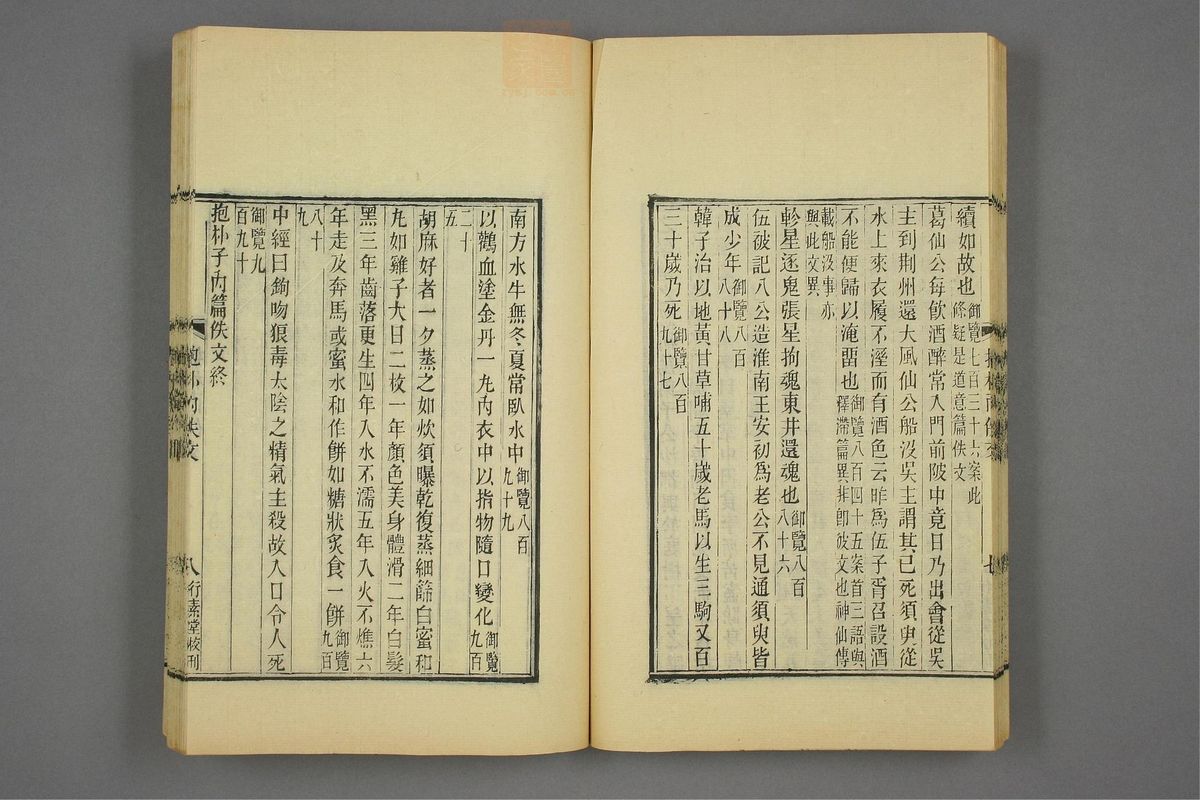 續如故也御覽七百三十六案此條疑是道意篇佚文
葛仙公每飲酒醉常入門前陂中竟日乃出會從吳
主到荆州還大風仙公船沒吳主謂其已死須臾從
水上來衣履不溼而有酒色云昨爲伍子胥召設酒
不能便歸以淹畱也御覽八百四十五案首三語與釋滯篇異非卽彼文也神仙傳
載船沒事亦與此文異
軫星逐鬼張星拘魂東井還魂也御覽八百八十六
伍被記八公造淮南王安初爲老公不見通須臾皆
成少年御覽八百八十八
韓子治以地黃甘草哺五十歲老馬以生三駒又百
三十歲乃死御覽八百九十七
七
南方水牛無冬夏常臥水中御覽八百九十九
以鸛血塗金丹一丸內衣中以指物隨口變化御覽九百
二十五
胡麻好者一夕蒸之如炊須曝乾復蒸細篩白蜜和
丸如雞子大日二枚一年顏色美身體滑二年白髮
黑三年齒落更生四年入水不濡五年入火不燋六
年走及奔馬或蜜水和作餅如糖狀炙食一餅御覽九百
八十九
中經曰鉤吻狼毒太陰之精氣主殺故入口令人死
御覽九百九十
抱朴子內篇佚文終
抱朴內佚文
八
行素堂校刊